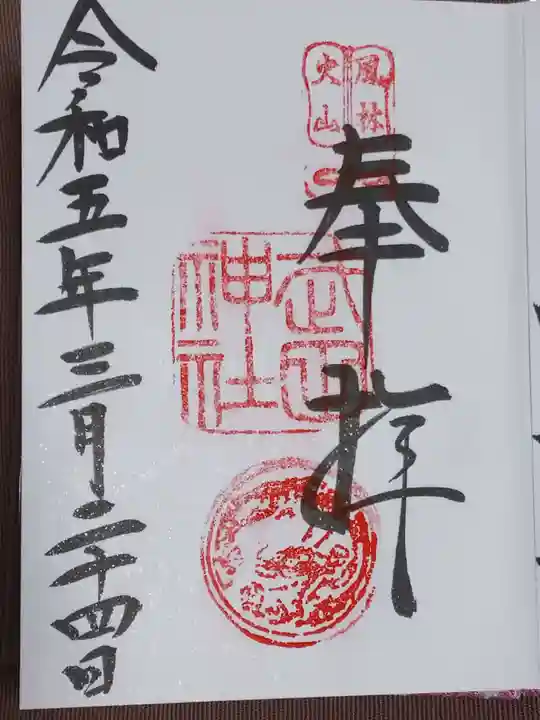 風林
火山
奉拝
武田
神社
令和五年三月二十四日